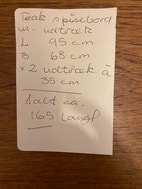 Teak spisebord
m. udtræk
L 95 cm
B 68 cm
+ 2 udtræk á
35 cm
Ialt ca.
165 langt